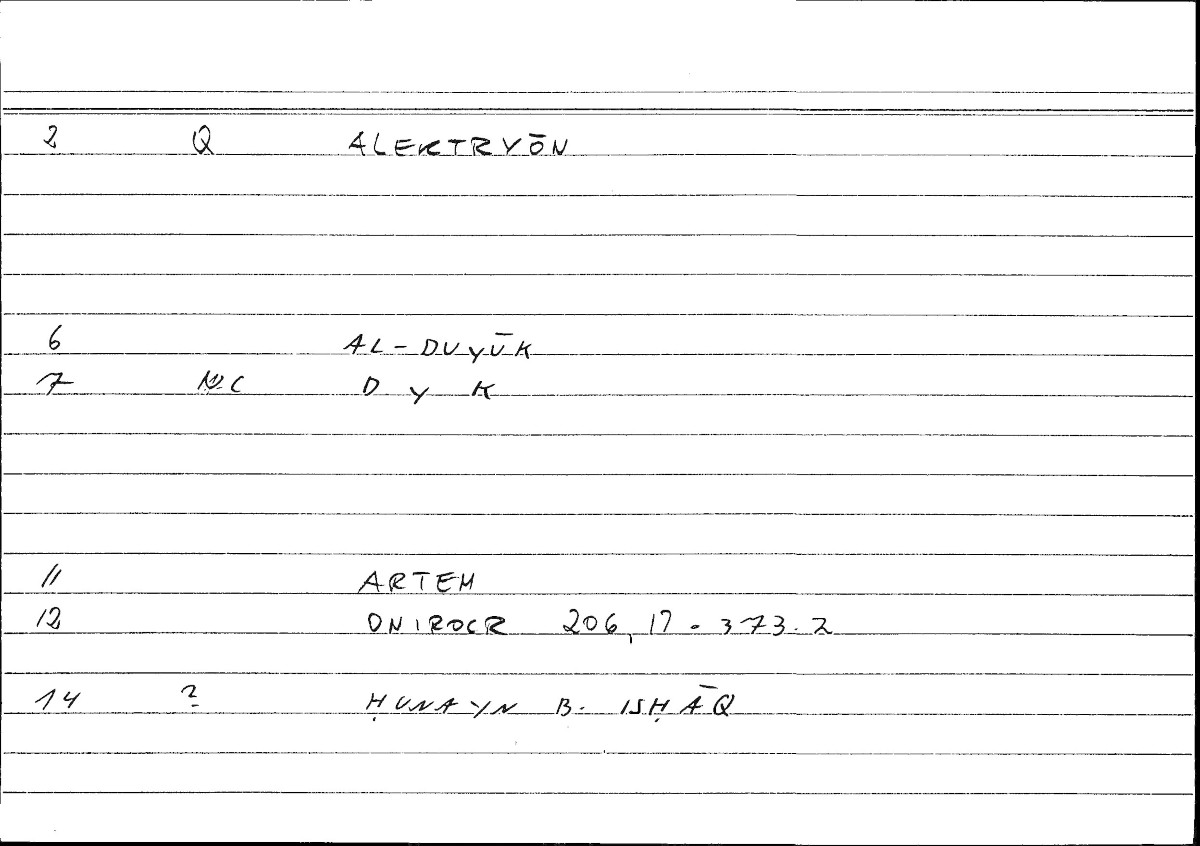 2 Q ALEKTRYŌN
6 AL-DUYŪK
7 NC D Y K
11 ARTEM
12 ONIROCR 206,17 - 373.2
14 2 ḤUNAYN B. ISḤĀQ